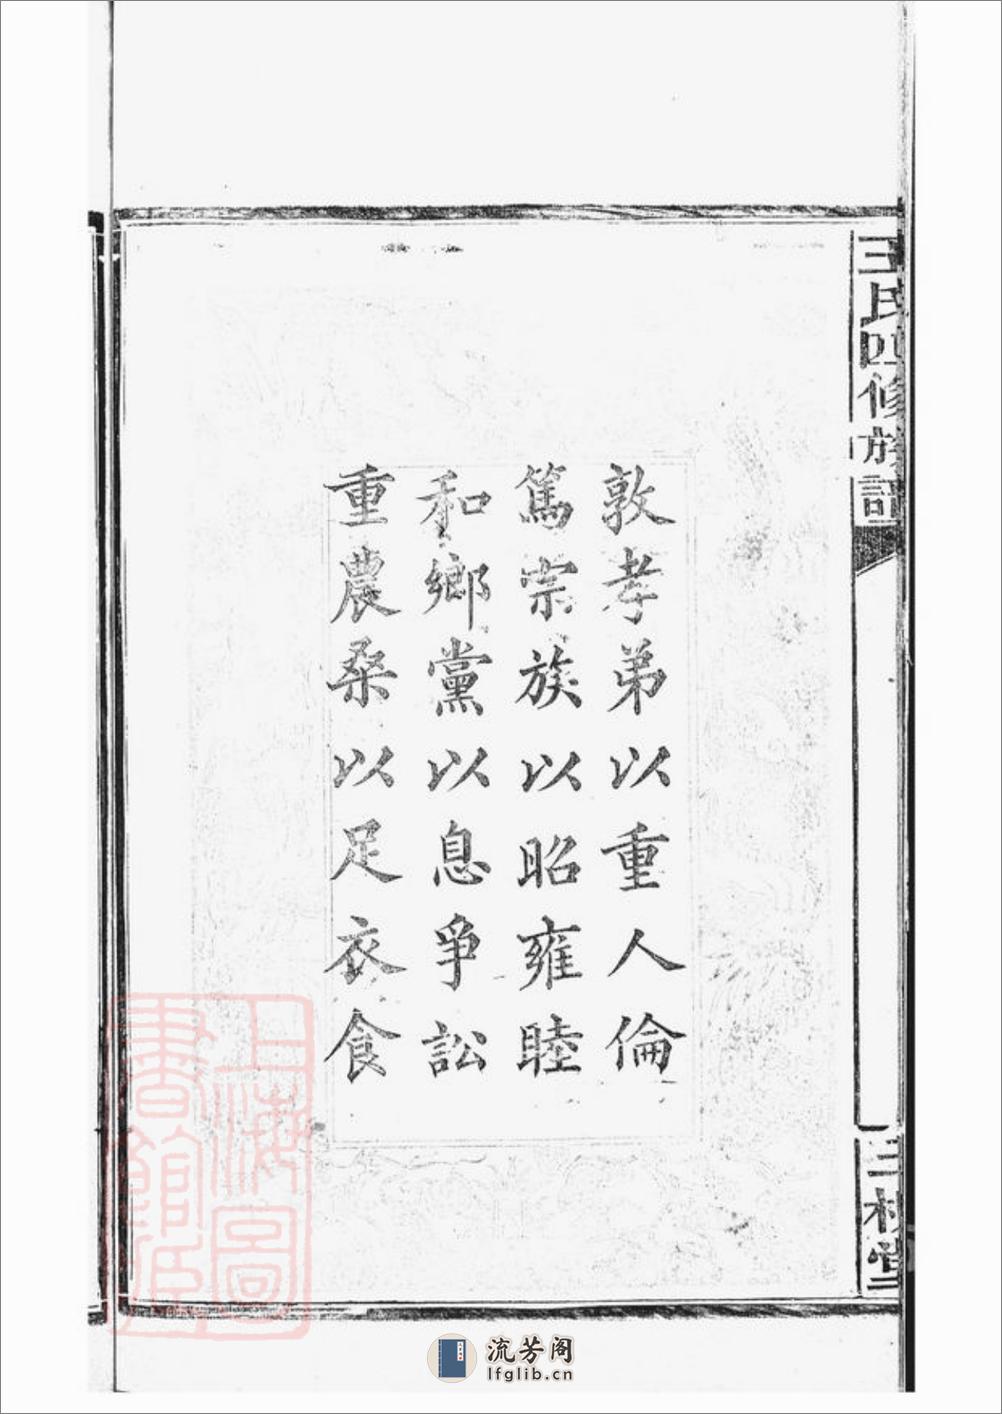 王氏四修族譜
三槐堂
敦孝弟以重人倫
篤宗族以昭雍睦
和鄉黨以息爭訟
重農桑以足衣食
上海圖書館藏
流芳阁
lfglib.cn